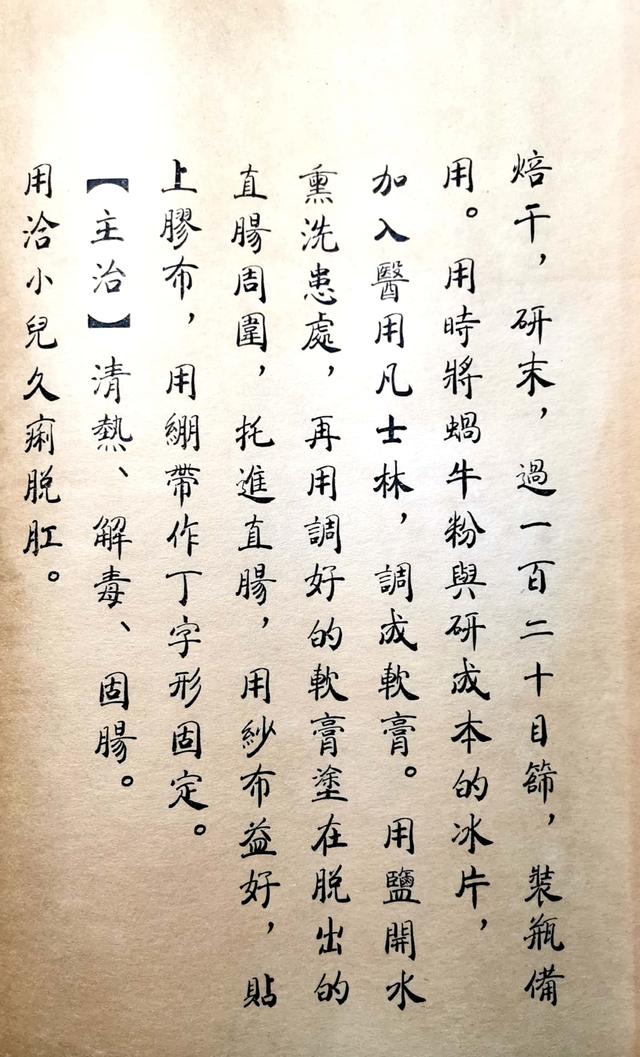 焙干，研末，過一百二十目篩，裝瓶備
用。用時將蝸牛粉與研成本的冰片，
加入醫用凡士林，調成軟膏。用鹽開水
熏洗患處，再用調好的軟膏塗在脫出的
直腸周圍，托進直腸，用紗布益好，貼
上膠布，用綳帶作丁字形固定。
【主治】清熱、解毒、固腸。
用治小兒久痢脫肛。